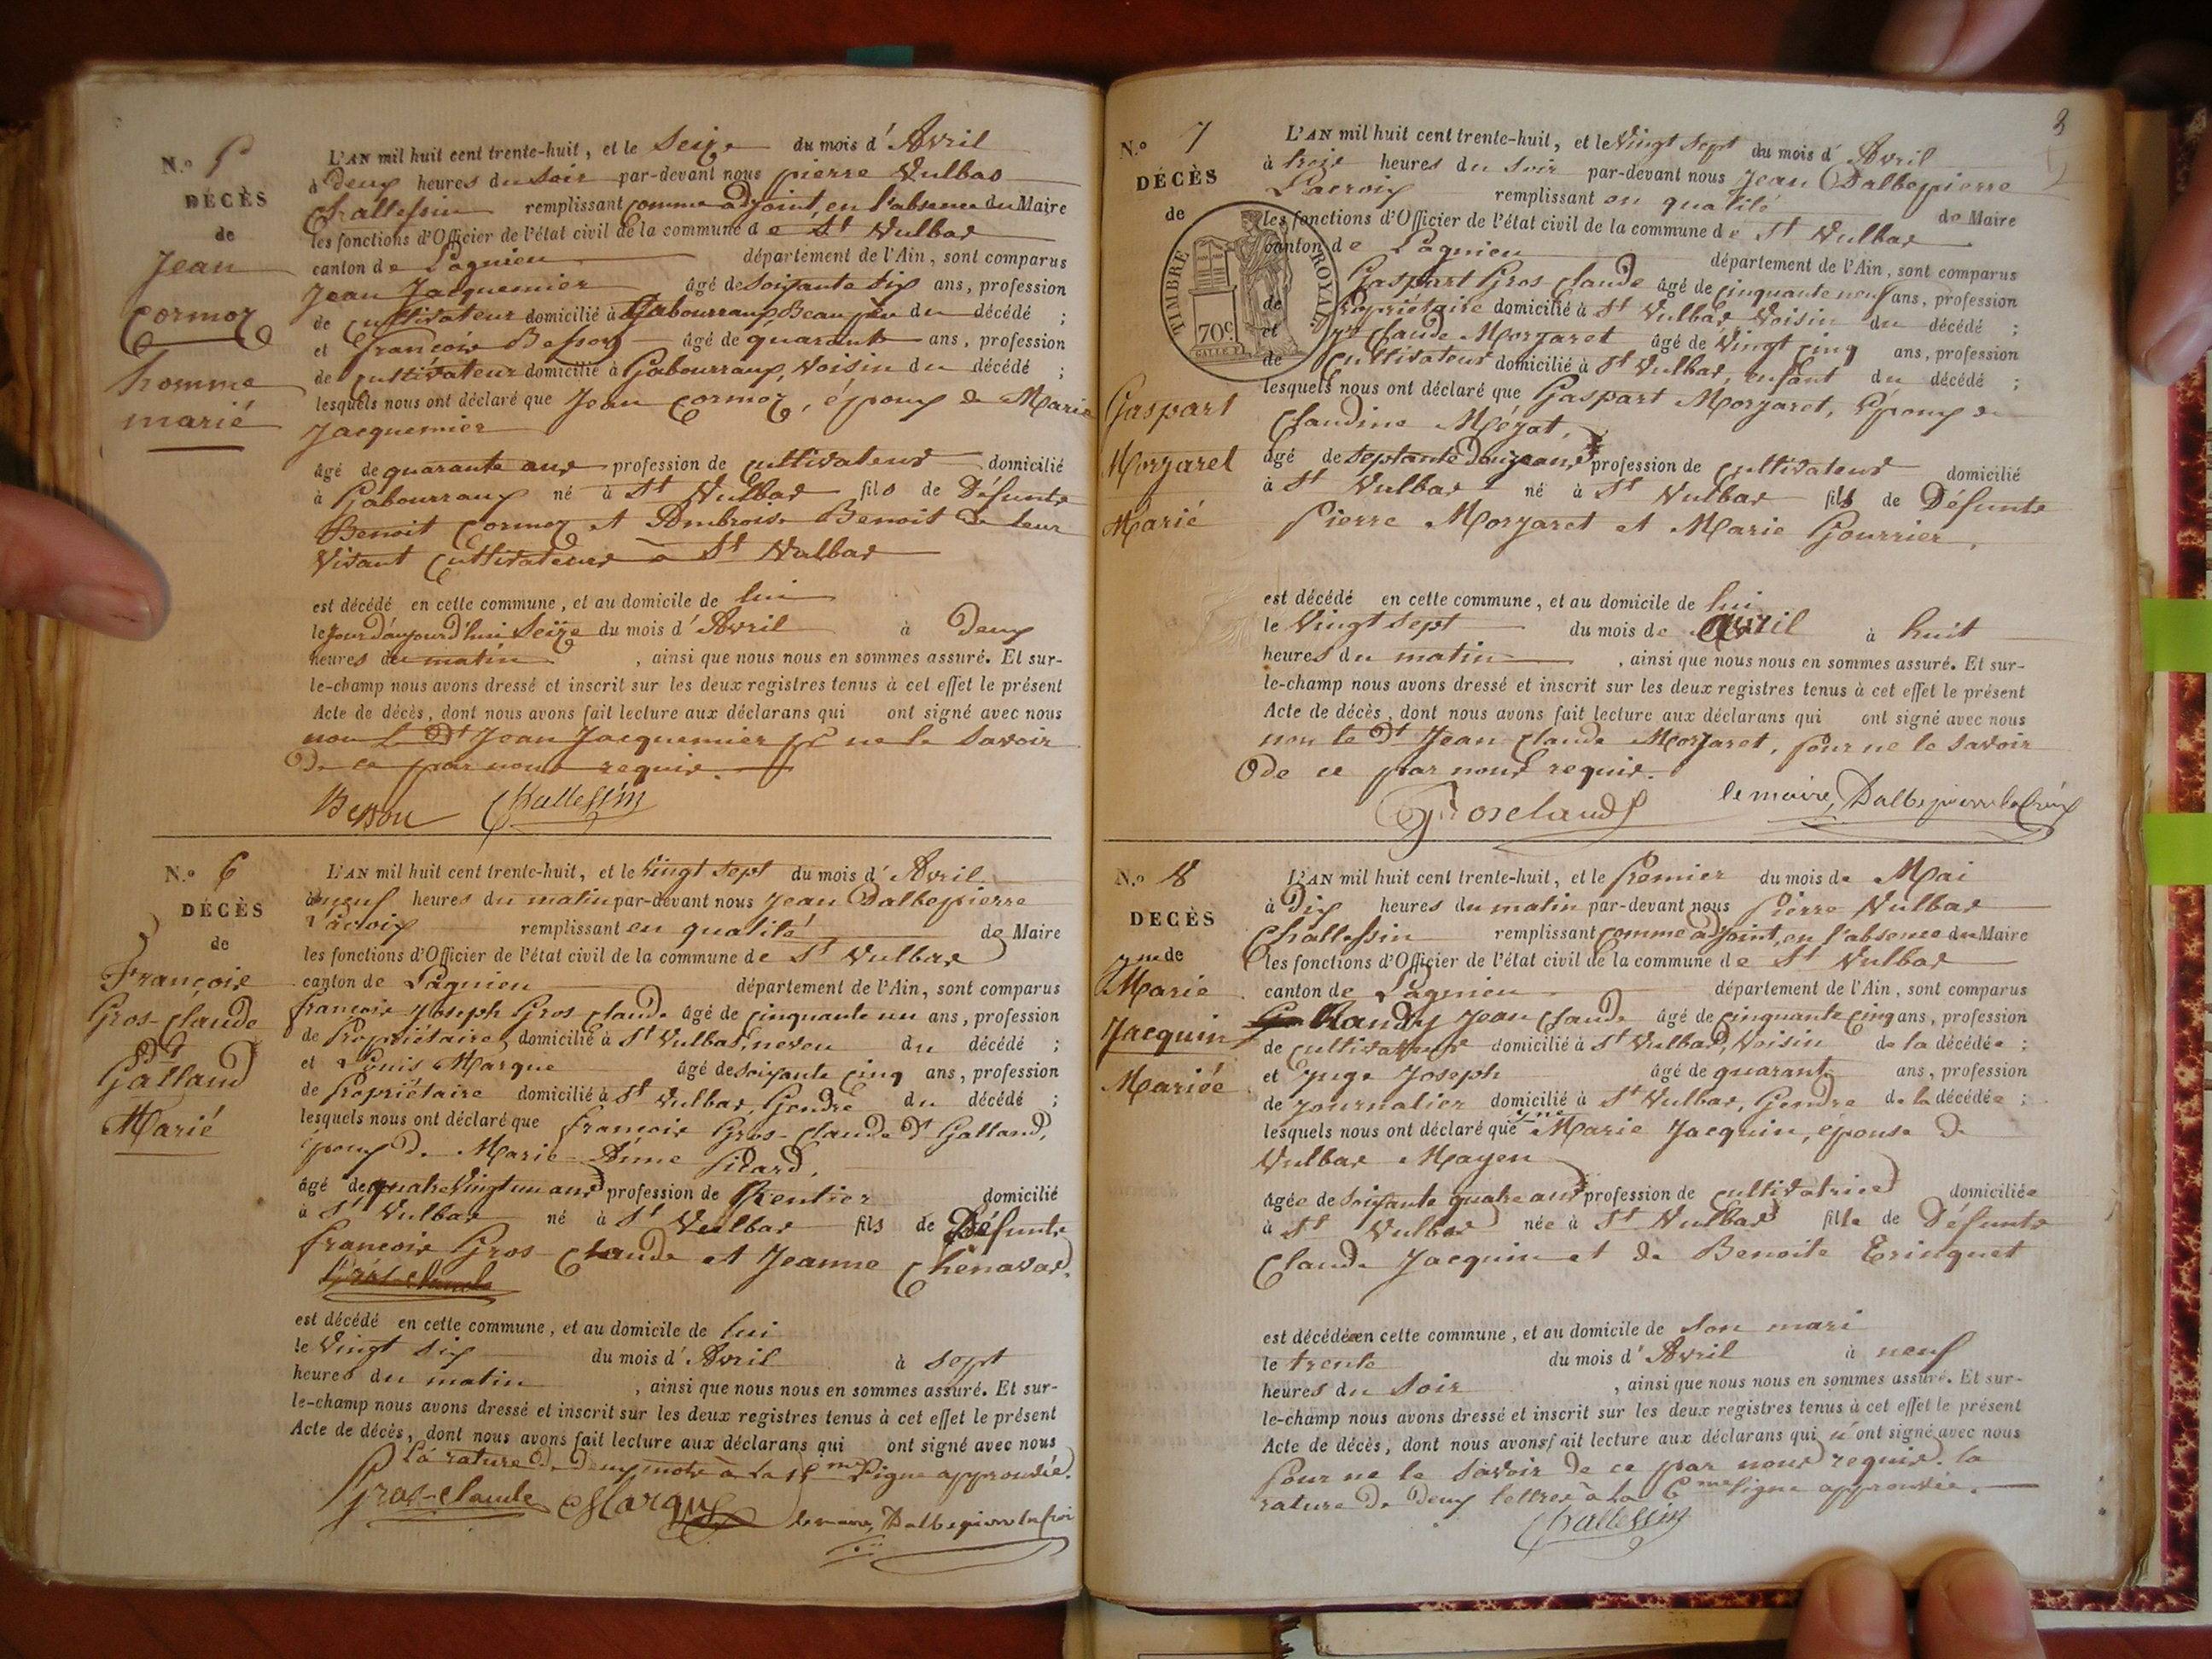 N.º 5
DÉCÈS
de
Jean
Cormoz
homme
marié
L'AN mil huit cent trente-huit, et le Seize du mois d'Avril
à Deux heures du Soir par-devant nous pierre Vulbas
Challessin remplissant comme adjoint, en l'absence du Maire
les fonctions d'Officier de l'état civil de la commune de St Vulbas
canton de Lagnieu département de l'Ain, sont comparus
Jean Jacquemier âgé de Soixante Six ans, profession
de Cultivateur domicilié à Gabourraux Beau père du décédé ;
et françois Besson âgé de quarante ans, profession
de cultivateur domicilié à Gabourraux, Voisin du décédé ;
lesquels nous ont déclaré que Jean Cormoz, époux de Marie
Jacquemier
âgé de quarante ans profession de Cultivateur domicilié
à Gabourraux né à St Vulbas fils de Défunts
Benoit Cormoz et Ambroise Benoit de leur
Vivant Cultivateurs à St Vulbas
est décédé en cette commune, et au domicile de lui
le jour d'aujourd'hui Seize du mois d'Avril à Deux
heures du matin , ainsi que nous nous en sommes assuré. Et sur-
le-champ nous avons dressé et inscrit sur les deux registres tenus à cet effet le présent
Acte de décès, dont nous avons fait lecture aux déclarans qui ont signé avec nous
non le Dt Jean Jacquemier pr ne le Savoir
De ce par nous requis.
Besson Challessin
N.º 6
DÉCÈS
de
François
Gros-Claude
dt
Galland
Marié
L'AN mil huit cent trente-huit, et le Vingt Sept du mois d'Avril
à neuf heures du matin par-devant nous Jean Dalbepierre
Lacroix remplissant en qualité de Maire
les fonctions d'Officier de l'état civil de la commune de St Vulbas
canton de Lagnieu département de l'Ain, sont comparus
françois Joseph Gros Claude âgé de Cinquante un ans, profession
de Propriétaire domicilié à St Vulbas, neveu du décédé ;
et Louis Marque âgé de soixante Cinq ans, profession
de Propriétaire domicilié à St Vulbas, Gendre du décédé ;
lesquels nous ont déclaré que françois Gros-Claude dt Galland,
époux de Marie-Anne Picard,
âgé de quatre Vingt un ans profession de Rentier domicilié
à St Vulbas né à St Vulbas fils de Défunts
françois Gros-Claude et Jeanne Chenavas,
Gros-claude
est décédé en cette commune, et au domicile de lui
le Vingt Six du mois d'Avril à Sept
heures du matin , ainsi que nous nous en sommes assuré. Et sur-
le-champ nous avons dressé et inscrit sur les deux registres tenus à cet effet le présent
Acte de décès, dont nous avons fait lecture aux déclarans qui ont signé avec nous
La rature de Deux mots à la 15me Ligne approuvée.
Gros-Claude Marque le maire, Dalbepierre lacroi
3
N.º 7
DÉCÈS
de
Gaspart
Morgaret
Marié
TIMBRE ROYAL
70c.
L'AN mil huit cent trente-huit, et le Vingt Sept du mois d'Avril
à trois heures du Soir par-devant nous Jean Dalbepierre
Lacroix remplissant en qualité de Maire
les fonctions d'Officier de l'état civil de la commune de St Vulbas
canton de Lagnieu département de l'Ain, sont comparus
Gaspart Gros-Claude âgé de Cinquante neuf ans, profession
de Propriétaire domicilié à St Vulbas Voisin du décédé ;
et Jn Claude Morgaret âgé de Vingt Cinq ans, profession
de Cultivateur domicilié à St Vulbas, enfant du décédé ;
lesquels nous ont déclaré que Gaspart Morgaret, époux de
Claudine Mézat,
âgé de Septante Douze ans, profession de Cultivateur domicilié
à St Vulbas né à St Vulbas fils de Défunts
Pierre Morgaret et Marie Gourrier,
est décédé en cette commune, et au domicile de lui
le Vingt Sept du mois de avril à huit
heures du matin , ainsi que nous nous en sommes assuré. Et sur-
le-champ nous avons dressé et inscrit sur les deux registres tenus à cet effet le présent
Acte de décès, dont nous avons fait lecture aux déclarans qui ont signé avec nous
non le Dt Jean Claude Morgaret, pour ne le savoir
De ce par nous requis.
Grosclaude le maire, Dalbepierre lacroix
N.º 8
DÉCÈS
de
Marie
Jacquin
Mariée
L'AN mil huit cent trente-huit, et le Premier du mois de Mai
à Dix heures du matin par-devant nous Pierre Vulbas
Challessin remplissant comme adjoint, en l'absence du Maire
les fonctions d'Officier de l'état civil de la commune de St Vulbas
canton de Lagnieu département de l'Ain, sont comparus
Randy Jean Claude âgé de Cinquante Cinq ans, profession
de Cultivateur domicilié à St Vulbas, Voisin de la décédée ;
et Juge Joseph âgé de quarante ans, profession
de Journalier domicilié à St Vulbas, Gendre de la décédée ;
lesquels nous ont déclaré que Marie Jacquin, épouse de
Vulbas Mayen
âgée de Soixante quatre ans profession de Cultivatrice domiciliée
à St Vulbas née à St Vulbas fille de Défunts
Claude Jacquin et de Benoite Trinquet
est décédée en cette commune, et au domicile de Son mari
le trente du mois d'Avril à neuf
heures du Soir , ainsi que nous nous en sommes assuré. Et sur-
le-champ nous avons dressé et inscrit sur les deux registres tenus à cet effet le présent
Acte de décès, dont nous avons fait lecture aux déclarans qui n'ont signé avec nous
Pour ne le Savoir De ce par nous requis. la
rature De Deux lettres à la 6me Ligne approuvée.
Challessin